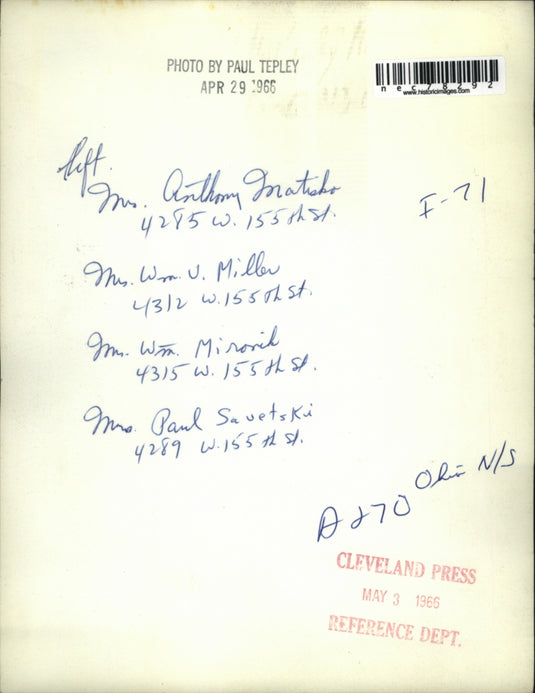 PHOTO BY PAUL TEPLEY
APR 29 1966
nec78292
www.historicimages.com
left.
Mrs. Anthony Matisko
4285 W. 155th St.
I-71
Mrs. Wm. V. Miller
4312 W. 155th St.
Mrs. Wm. Mirovik
4315 W. 155th St.
Mrs. Paul Savetski
4289 W. 155th St.
Ohio N/S
A270
CLEVELAND PRESS
MAY 3 1966
REFERENCE DEPT.